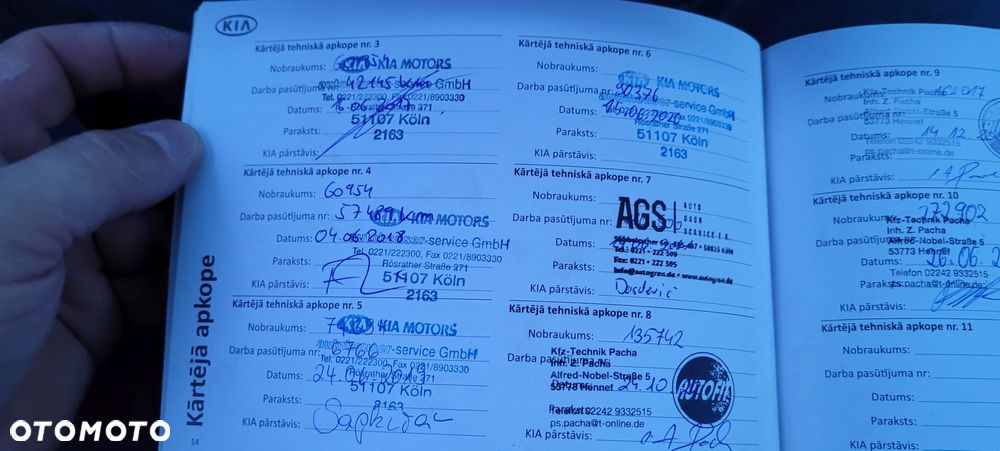 KIA
Kārtējā tehniskā apkope nr. 3
Nobraukums:
KIA MOTORS
Darba pasūtījuma nr:
42145 km
-service GmbH
Tel. 0221/222300, Fax 0221/8903330
Datums:
Rösrather Straße 271
51107 Köln
Paraksts:
2163
KIA pārstāvis:
Kārtējā tehniskā apkope nr. 4
Nobraukums: 60954
Darba pasūtījuma nr: 57489 km
KIA MOTORS
Datums: 04.06.2018
-service GmbH
Tel. 0221/222300, Fax 0221/8903330
Rösrather Straße 271
Paraksts:
51107 Köln
KIA pārstāvis:
2163
Kārtējā tehniskā apkope nr. 5
Nobraukums:
KIA MOTORS
Darba pasūtījuma nr: 6766
-service GmbH
Tel. 0221/222300, Fax 0221/8903330
Datums: 24.
Rösrather Straße 271
51107 Köln
Paraksts:
2163
KIA pārstāvis:
Kārtējā tehniskā apkope nr. 6
Nobraukums:
KIA MOTORS
Darba pasūtījuma nr: 90376
-service GmbH
Tel. 0221/222300, Fax 0221/8903330
Datums: 15.06.2020
Rösrather Straße 271
Paraksts:
51107 Köln
KIA pārstāvis:
2163
Kārtējā tehniskā apkope nr. 7
Nobraukums:
AGS
AUTO
GRAN
SERVICE E.K.
Darba pasūtījuma nr:
50825 Köln
Datums:
Tel: 0221 - 222 500
Fax: 0221 - 222 505
Paraksts:
info@autogran.de • www.autogran.de
KIA pārstāvis:
Kārtējā tehniskā apkope nr. 8
Nobraukums: 135742
Kfz-Technik Pacha
Darba pasūtījuma nr:
Inh. Z. Pacha
Alfred-Nobel-Straße 5
Datums: 24.10.
53773 Hennef
AUTOFIT
Paraksts:
Telefon 02242 9332515
ps.pacha@t-online.de
KIA pārstāvis:
Kārtējā tehniskā apkope nr. 9
Nobraukums:
Kfz-Technik Pacha
Inh. Z. Pacha
Darba pasūtījuma
Alfred-Nobel-Straße 5
53773 Hennef
Datums: 14.12.
Telefon 02242 9332515
Paraksts:
ps.pacha@t-online.de
KIA pārstāvis:
Kārtējā tehniskā apkope nr. 10
Nobraukums: 172902
Kfz-Technik Pacha
Inh. Z. Pacha
Darba pasūtījuma
Alfred-Nobel-Straße 5
53773 Hennef
Datums: 26.06.2
Telefon 02242 9332515
Paraksts:
ps.pacha@t-online.de
KIA pārstāvis:
Kārtējā tehniskā apkope nr. 11
Nobraukums:
Darba pasūtījuma nr:
Datums:
Paraksts:
KIA pārstāvis:
Kārtējā apkope
14
OTOMOTO